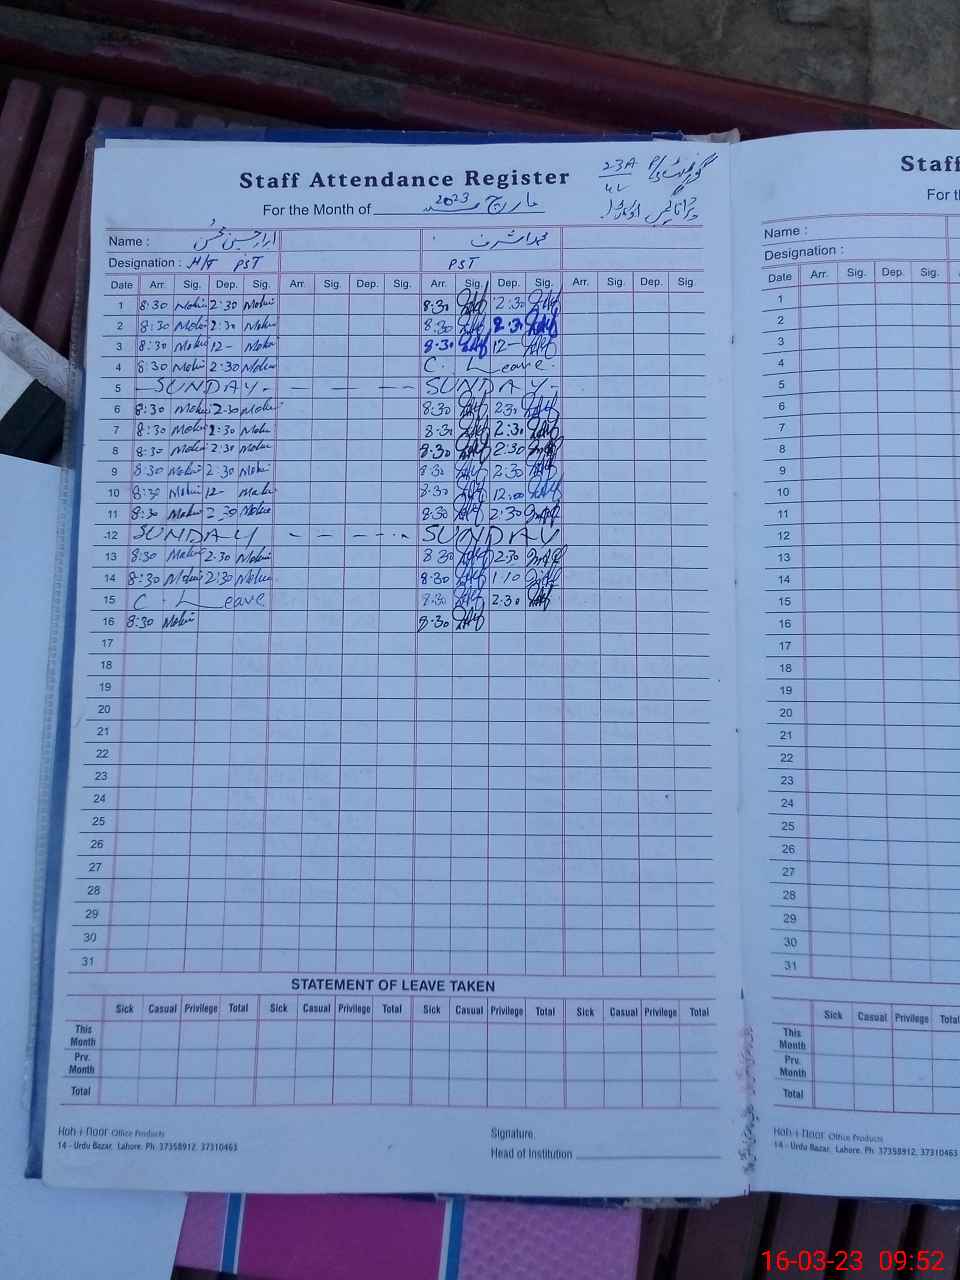 Staff Attendance Register
23A
4L
For the Month of مارچ 2023
Name : محمد اشرف
Designation : H/T PST PST
Date Arr. Sig. Dep. Sig. Arr. Sig. Dep. Sig. Arr. Sig. Dep. Sig. Arr. Sig. Dep. Sig.
1 8:30 Mohsin 2:30 Mohsin 8:30 2:30
2 8:30 Mohsin 2:30 Mohsin 8:30 2:30
3 8:30 Mohsin 12- Mohsin 8:30 12-
4 8:30 Mohsin 2:30 Mohsin C. Leave.
5 - SUNDAY - - — — -- SUNDAY -
6 8:30 Mohsin 2:30 Mohsin 8:30 2:30
7 8:30 Mohsin 2:30 Mohsin 8:30 2:30
8 8:30 Mohsin 2:30 Mohsin 8:30 2:30
9 8:30 Mohsin 2:30 Mohsin 8:30 2:30
10 8:30 Mohsin 12- Mohsin 8:30 12:00
11 8:30 Mohsin 2:30 Mohsin 8:30 2:30
12 SUNDAY - - - - - - SUNDAY
13 8:30 Mohsin 2:30 Mohsin 8:30 2:30
14 8:30 Mohsin 2:30 Mohsin 8:30 1:10
15 C. Leave 8:30 2:30
16 8:30 Mohsin 8:30
17
18
19
20
21
22
23
24
25
26
27
28
29
30
31
STATEMENT OF LEAVE TAKEN
Sick Casual Privilege Total Sick Casual Privilege Total Sick Casual Privilege Total Sick Casual Privilege Total
This Month
Prv. Month
Total
Koh-i-Noor Office Products
14 - Urdu Bazar, Lahore. Ph: 37358912, 37310463
Signature
Head of Institution
Staff
For th
Name :
Designation :
Date Arr. Sig. Dep. Sig.
1
2
3
4
5
6
7
8
9
10
11
12
13
14
15
16
17
18
19
20
21
22
23
24
25
26
27
28
29
30
31
Sick Casual Privilege Total
This Month
Prv. Month
Total
Koh-i-Noor Office Products
14 - Urdu Bazar, Lahore. Ph: 37358912, 37310463
16-03-23 09:52